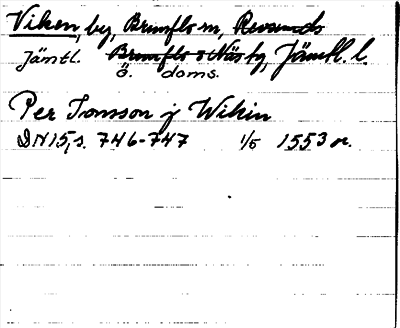 Viken, by, Brunflo sn, Revsunds
Jämtl. Brunflo o Näs tg, Jämtl. l.
ö. doms.
Per Jonsson j Wikin
DN 15, s. 746-747 1/5 1553 or.